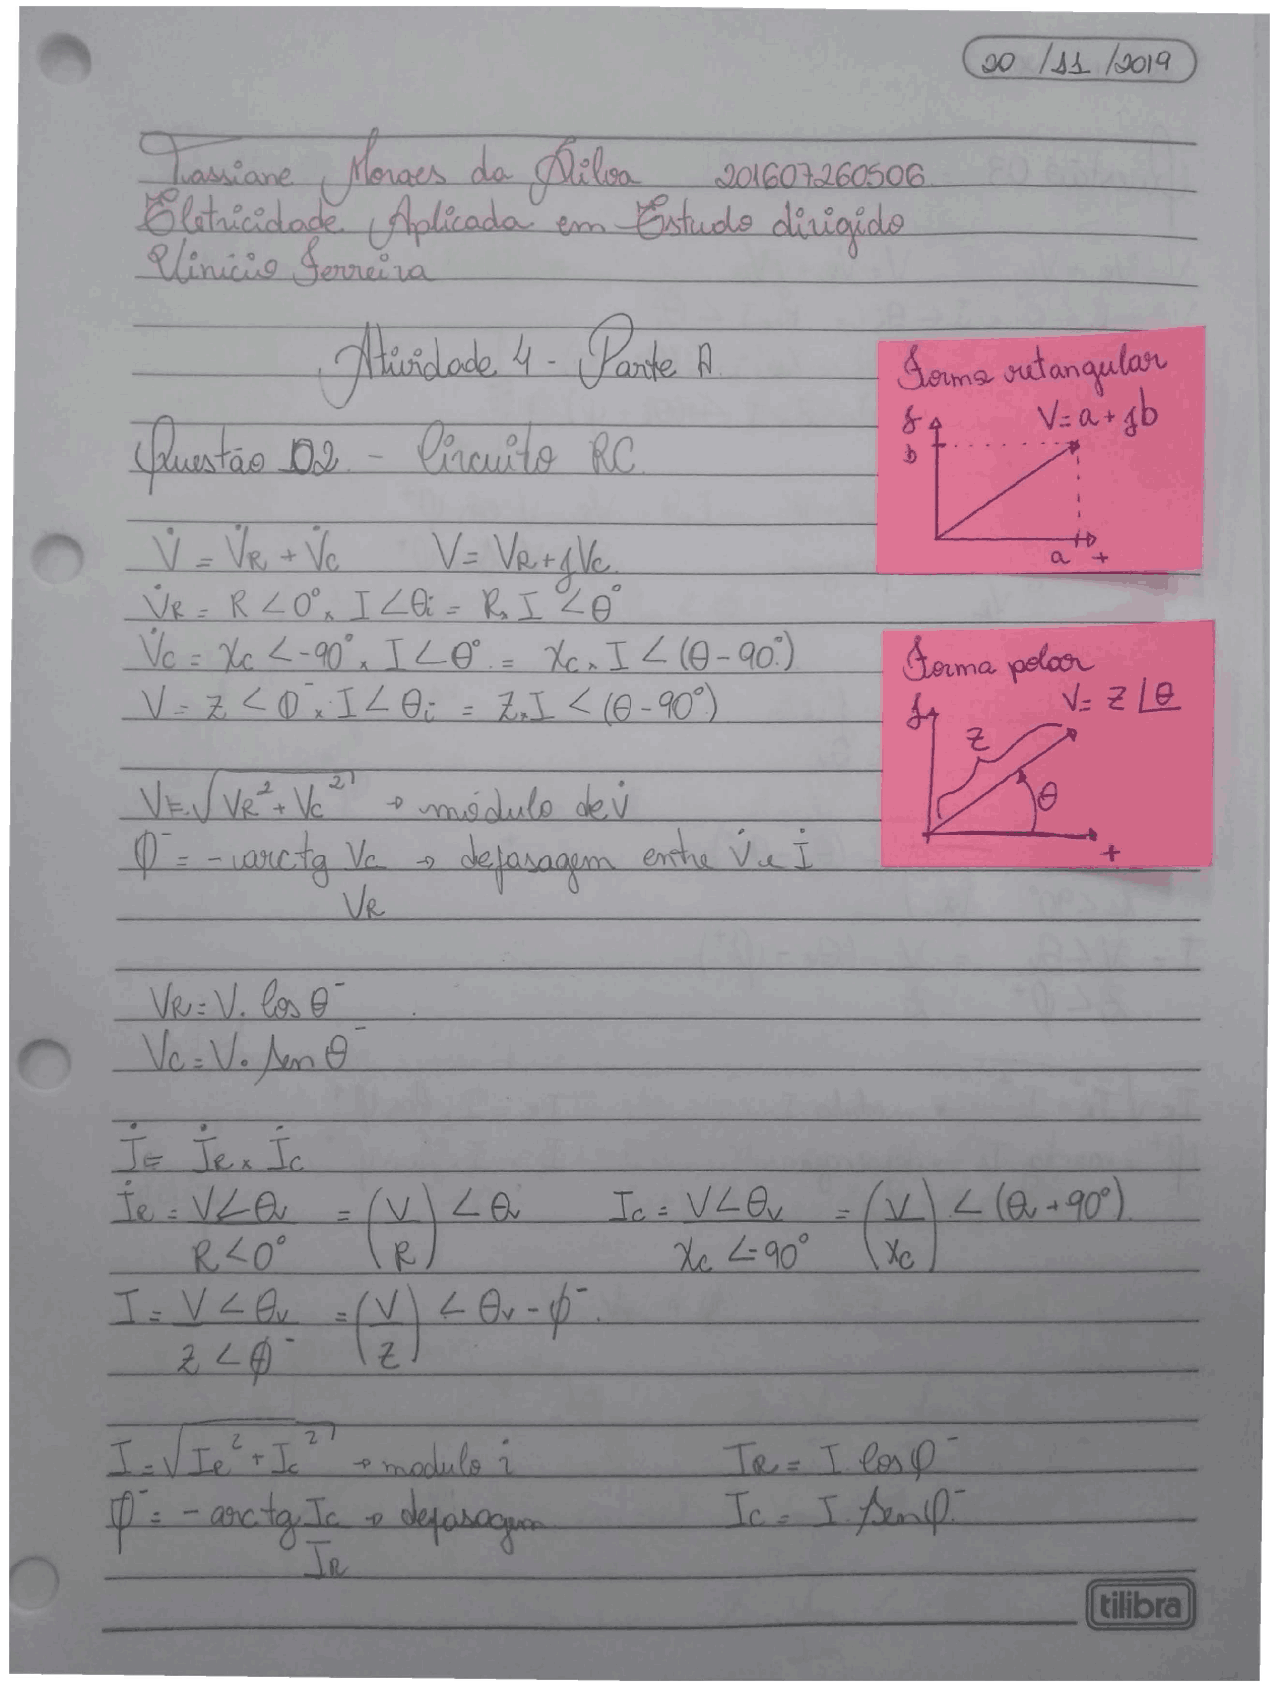 20 /11 /2019
Tassiane Moraes da Silva 201607260506
Eletricidade Aplicada em Estudo dirigido
Vinicio Ferreira
Atividade 4 - Parte A
Forma retangular
V = a + jb
j
b
a +
Questão 02 - Circuito RC
V̇ = V̇R + V̇c V = VR + jVc
V̇R = R ∠0° x I∠θi = R x I ∠θ°
V̇c = Xc ∠-90° x I∠θ° = Xc x I ∠(θ-90°)
V = Z ∠Φ⁻ x I∠θi = Z x I ∠(θ-90°)
Forma polar
V = Z ∠θ
j
Z
θ
+
V = √VR² + Vc² → módulo de V̇
φ⁻ = - arctg Vc → defasagem entre V̇ e İ
VR
VR = V. Cos θ⁻
Vc = V. Sen θ⁻
İ = İR x İc
İR = V∠θv = (V) ∠θv Ic = V∠θv = (V) ∠(θv + 90°)
R∠0° (R) Xc ∠-90° (Xc)
I = V∠θv = (V) ∠θv - φ⁻
Z∠φ⁻ (Z)
I = √IR² + Ic² → modulo i IR = I. Cos φ⁻
φ⁻ = - arctg Ic → defasagem Ic = I. Sen φ⁻
IR
tilibra